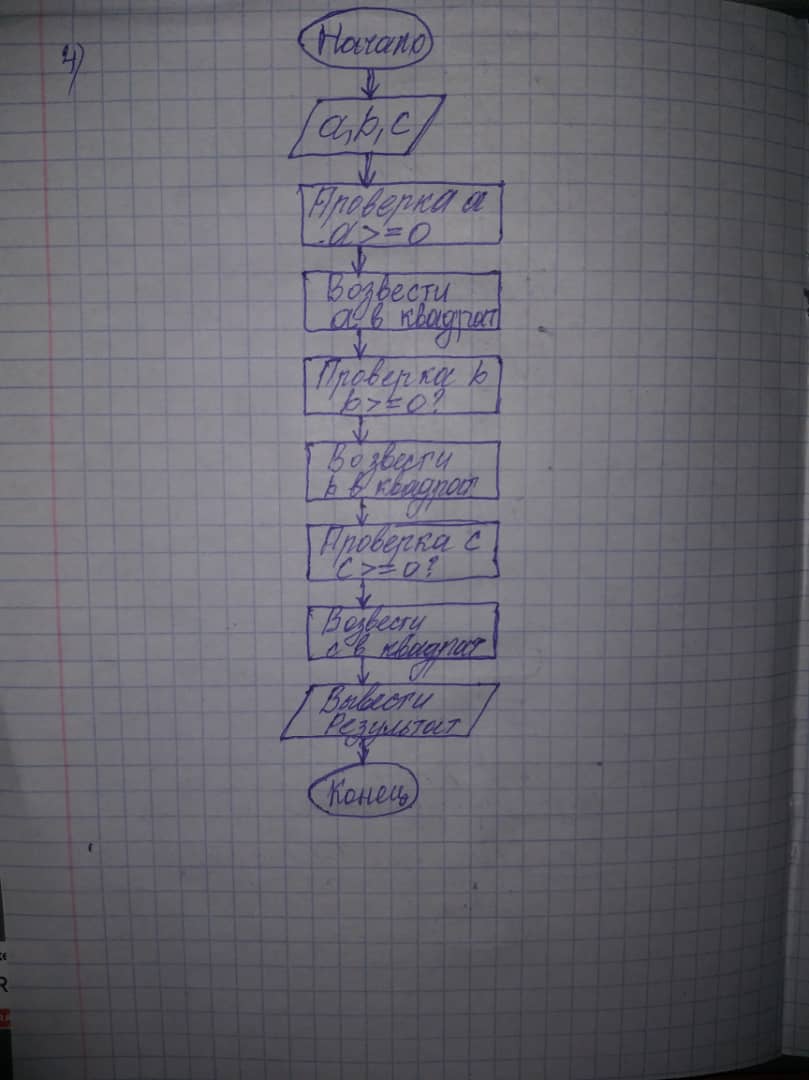 4)
Начало
a, b, c
Проверка a
a>=0
Возвести
a в квадрат
Проверка b
b>=0?
Возвести
b в квадрат
Проверка c
c>=0?
Возвести
c в квадрат
Вывести
Результат
Конец
R